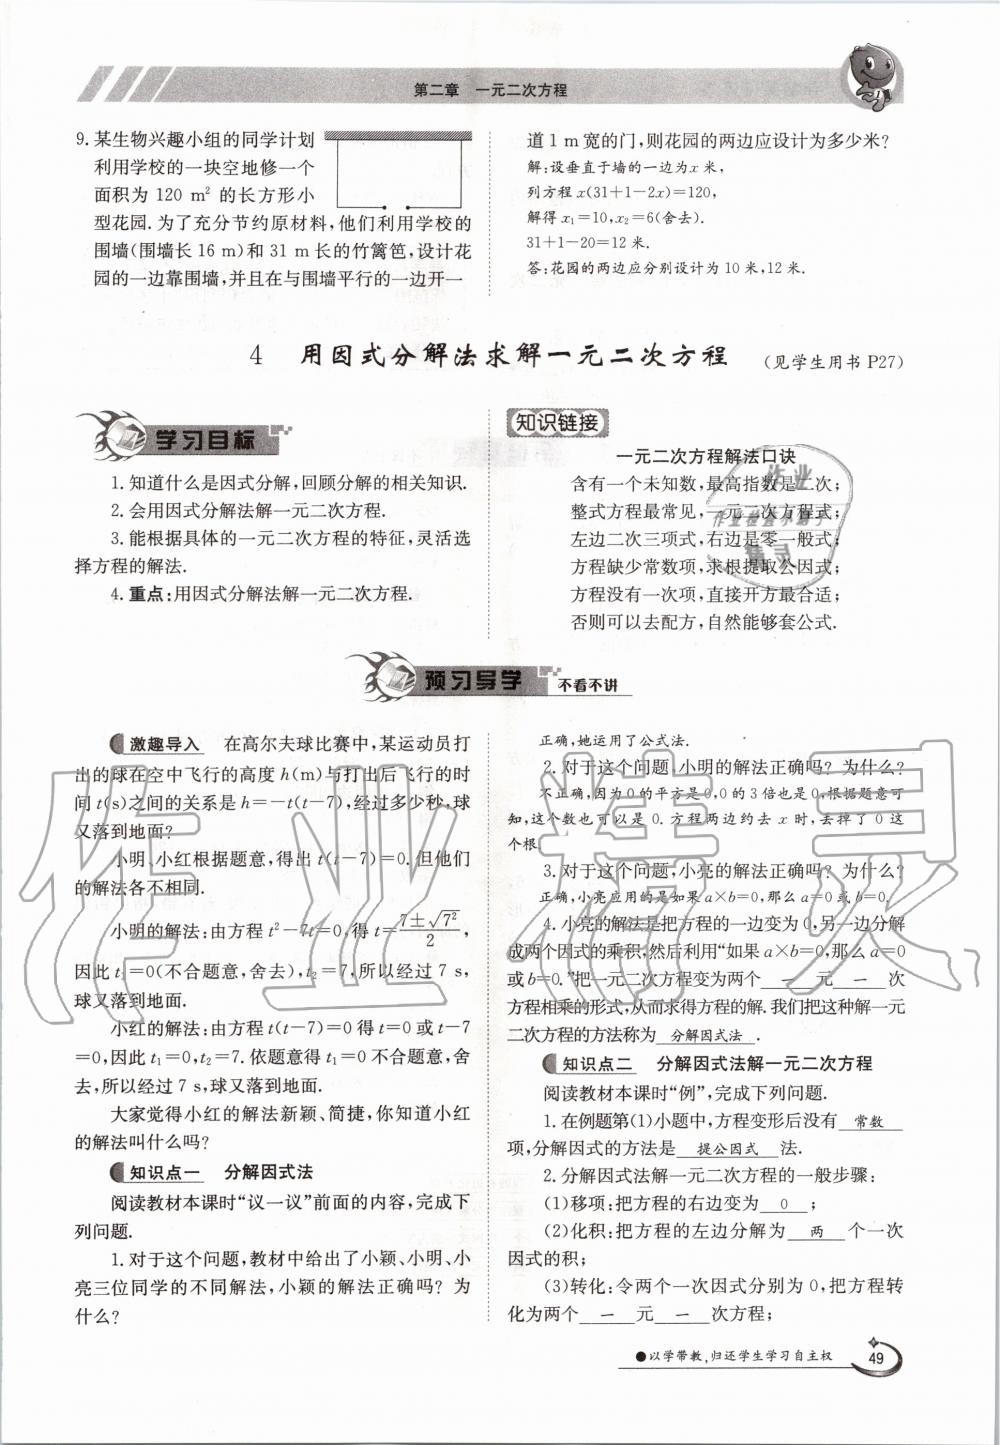 第二章 一元二次方程
9. 某生物兴趣小组的同学计划
利用学校的一块空地修一个
面积为 120 m² 的长方形小
型花园. 为了充分节约原材料,他们利用学校的
围墙(围墙长 16 m)和 31 m 长的竹篱笆,设计花
园的一边靠围墙,并且在与围墙平行的一边开一
道 1 m 宽的门,则花园的两边应设计为多少米?
解:设垂直于墙的一边为 x 米,
列方程 x(31+1-2x)=120,
解得 x₁=10,x₂=6(舍去).
31+1-20=12 米.
答:花园的两边应分别设计为 10 米,12 米.
4 用因式分解法求解一元二次方程 (见学生用书 P27)
学习目标
1. 知道什么是因式分解,回顾分解的相关知识.
2. 会用因式分解法解一元二次方程.
3. 能根据具体的一元二次方程的特征,灵活选
择方程的解法.
4. 重点:用因式分解法解一元二次方程.
知识链接
一元二次方程解法口诀
含有一个未知数,最高指数是二次;
整式方程最常见,一元二次方程式;
左边二次三项式,右边是零一般式;
方程缺少常数项,求根提取公因式;
方程没有一次项,直接开方最合适;
否则可以去配方,自然能够套公式.
预习导学 不看不讲
激趣导入 在高尔夫球比赛中,某运动员打
出的球在空中飞行的高度 h(m)与打出后飞行的时
间 t(s)之间的关系是 h=-t(t-7),经过多少秒,球
又落到地面?
小明、小红根据题意,得出 t(t-7)=0. 但他们
的解法各不相同.
小明的解法:由方程 t²-7t=0,得 t=(7±√7²)/2,
因此 t₁=0(不合题意,舍去),t₂=7,所以经过 7 s,
球又落到地面.
小红的解法:由方程 t(t-7)=0 得 t=0 或 t-7
=0,因此 t₁=0,t₂=7. 依题意得 t=0 不合题意,舍
去,所以经过 7 s,球又落到地面.
大家觉得小红的解法新颖、简捷,你知道小红
的解法叫什么吗?
知识点一 分解因式法
阅读教材本课时“议一议”前面的内容,完成下
列问题.
1. 对于这个问题,教材中给出了小颖、小明、小
亮三位同学的不同解法,小颖的解法正确吗? 为
什么?
正确,她运用了公式法.
2. 对于这个问题,小明的解法正确吗? 为什么?
不正确,因为 0 的平方是 0,0 的 3 倍也是 0,根据题意可
知,这个数也可以是 0. 方程两边约去 x 时,丢掉了 0 这
个根.
3. 对于这个问题,小亮的解法正确吗? 为什么?
正确,小亮应用的是如果 a×b=0,那么 a=0 或 b=0.
4. 小亮的解法是把方程的一边变为 0,另一边分解
成两个因式的乘积,然后利用“如果 a×b=0,那么 a=0
或 b=0.”把一元二次方程变为两个 一 元 一 次
方程相乘的形式,从而求得方程的解. 我们把这种解一元
二次方程的方法称为 分解因式法 .
知识点二 分解因式法解一元二次方程
阅读教材本课时“例”,完成下列问题.
1. 在例题第(1)小题中,方程变形后没有 常数
项,分解因式的方法是 提公因式 法.
2. 分解因式法解一元二次方程的一般步骤:
(1)移项:把方程的右边变为 0 ;
(2)化积:把方程的左边分解为 两 个一次
因式的积;
(3)转化:令两个一次因式分别为 0,把方程转
化为两个 一 元 一 次方程;
●以学带教,归还学生学习自主权 49
作业精灵
作业
作业检查小助手
精灵